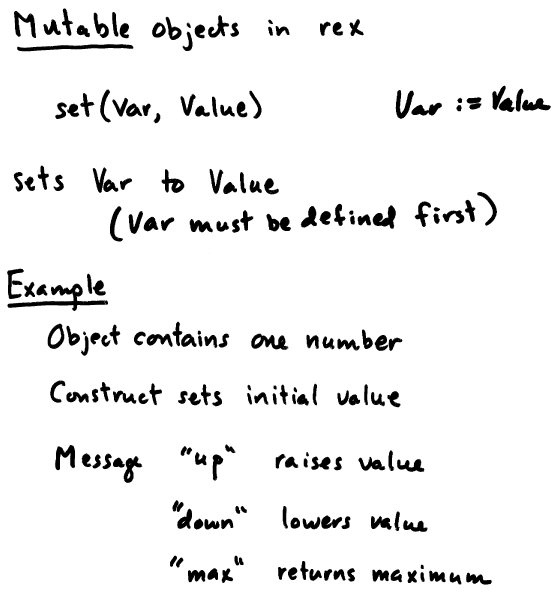 Mutable objects in rex
set(Var, Value) Var := Value
sets Var to Value
(Var must be defined first)
Example
Object contains one number
Construct sets initial value
Message "up" raises value
"down" lowers value
"max" returns maximum